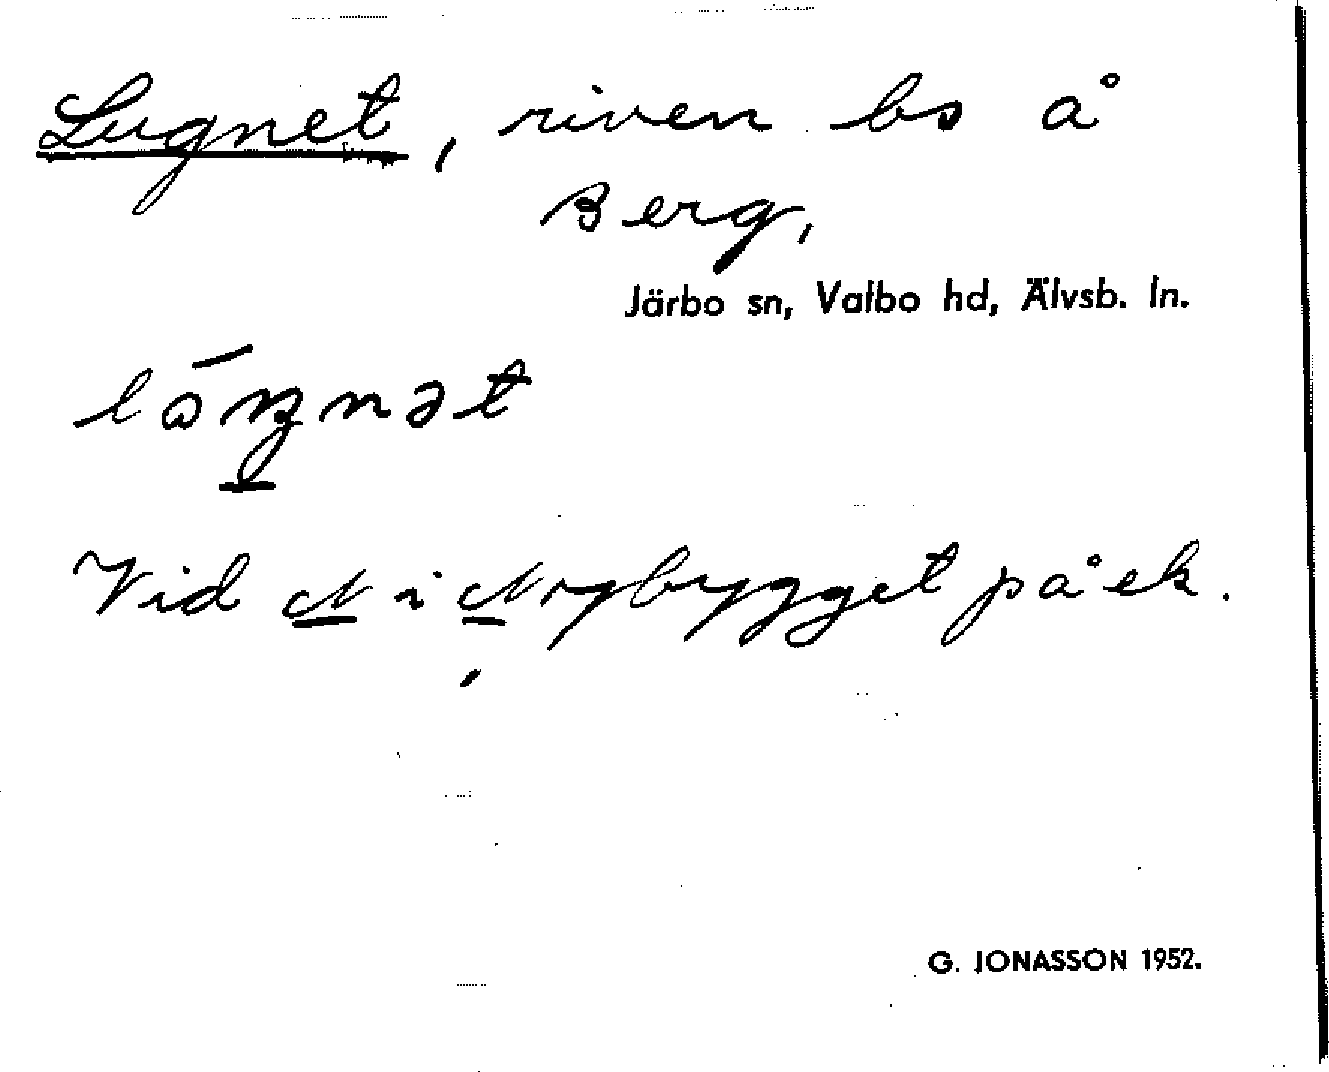 Lugnet, riven bs å
Berg,
Järbo sn, Valbo hd, Älvsb. ln.
Vid N i Nybygget på ek.
G. JONASSON 1952.